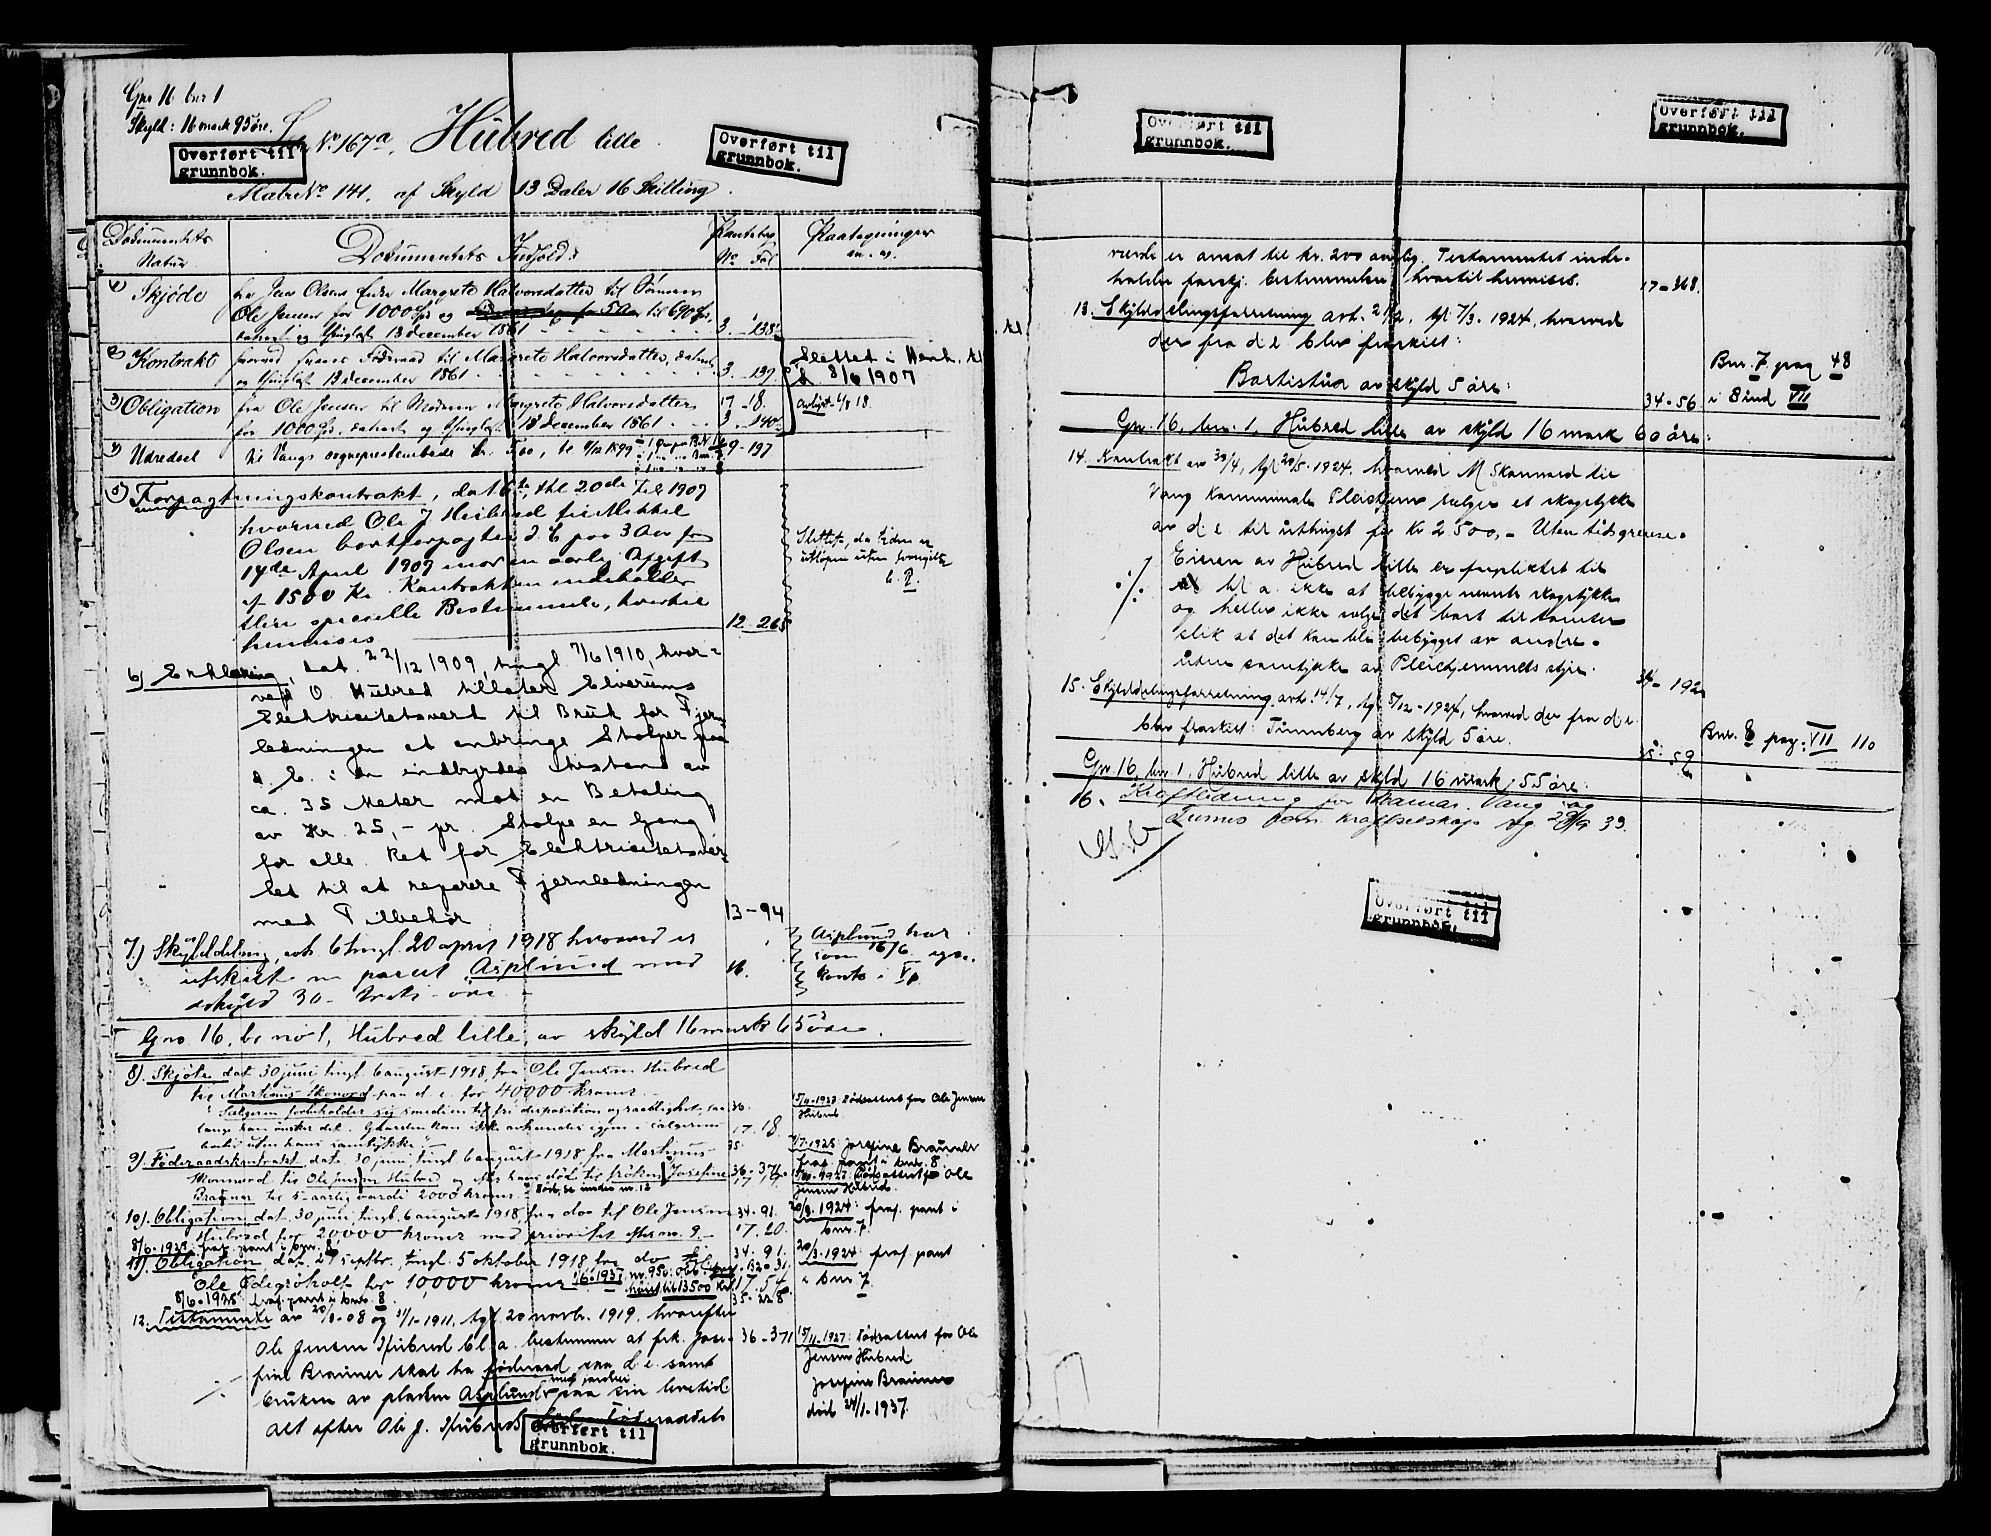 Gnr 16 bnr 1
Skyld: 16 mark 95 øre.
Løb No 167a, Hubred lille.
Overført til
grunnbok.
Overført til
grunnbok.
Matr No 141. af Skyld 13 Daler 16 Skilling.
Dokumentets Natur
Dokumentets Indhold:
Pantebog
No Fol
Paategninger m. v.
1) Skjøde fra Jens Olsens Enke Margrete Halvorsdatter til Sønnen
Ole Jensen for 1000 Spd og
datert og thinglæst 13 december 1861
3. 138
2) Kontrakt hvorved sikres Føderaad til Margrete Halvorsdatter, datert
og thinglæst 13 december 1861
3. 139
Slettet i Henh. til
8/6 1907
3) Obligation fra Ole Jensen til Moderen Margrete Halvorsdatter
for 1000 Spd. datert og thinglæst 13 december 1861.
17-18.
3. 140
Avlyst 6/8 18.
4) Udredsel til Vangs sogneprestembede
9-197
5) Forpagtningskontrakt, dat 6te, thl 20de Juli 1909
hvorved Ole J Hubred til Mikkel
Olsen bortforpagter d. E. paa 3 Aar fra
14de April 1909 mod en aarlig Afgift
af 1500 Kr. Kontrakten indeholder
flere specielle Bestemmelse, hvortil
henvises
12-265
Slettet, da tiden er
utløpen uten
6) Erklæring, dat. 22/12 1909, tingl 7/6 1910, hvor-
ved O. Hubred tillater Elverums
Elektricitetsverk til Bruk for Fjern
ledningen at anbringe Stolper paa
d. E. i en indbyrdes Avstand av
ca. 35 Meter mot en Betaling
av Kr. 25,- pr. Stolpe en Gang
for alle. Ret for Elektricitetsver-
ket til at reparere Fjernledningen
med Tilbehør
13-94
7) Skylddeling, avh. 6 tingl. 20 april 1918 hvorved er
utskilt en parcel Asplund med
skyld 30 - tretti - øre
Asplund har
som 16/6 egen
konto i
Gno. 16, br no 1, Hubred lille, av skyld 16 mark 65 øre.
8). Skjøte dat 30 juni tingl. 6 august 1918, fra Ole Jensen Hubred
til Martinius Skonnord paa d. e. for 40000 kroner.
Sælgeren forbeholder sig
længe han ønsker det. Gaarden kan ikke avhændes igjen i sælgerens
levetid uten hans samtykke.
17. 18.
15/11-1927 Dødsattest for Ole Jensen
Hubred
9). Føderaadskontrakt dat. 30 juni tingl. 6 august 1918 fra Martinius
Skonnord til Ole Jensen Hubred og efter hans død til frøken Josefine
Brauner til 5-aarlig værdi 2000 kroner.
Død, se under nr. 12
36-371
7/7-1928: Josefine Brauner
fraf. pant i bnr. 8
Dødsattest for Ole
Jensen Hubred
10). Obligation dat. 30 juni, tingl. 6 august 1918, fra do til Ole Jensen
Hubred for 20,000 kroner med prioritet efter no. 9.
34-91.
17. 20.
20/3. 1924: fraf. pant i
bnr. 7.
8/6-1928 fraf. pant i bnr. 8
11). Obligation dat. 27 septbr, tingl. 5 oktober 1918 fra do til
Ole Ødegårdholt for 10,000 kroner 1/6-1937 nr. 950: obl.
34-91.
17. 54
35-228
20/3-1924: fraf. pant
i bnr 7.
8/6-1928: fraf. pant i bnr. 8
12. Testamente av 20/1-08 og 31/1-1911, tgl. 20 novb. 1919, hvorefter
Ole Jensen Hubred bl. a. bestemmer at frk. Jose-
fine Brauner skal ha føderaad paa d. e. samt
bruken av pladsen Asplund paa sin levetid
alt efter Ole J. Hubreds død. Føderaadets
36-371
15/11-1927: Dødsattest for Ole
Jensen Hubred
Josefine Brauner
død 24/1-1937.
Overført til
grunnbok.
Overført til
grunnbok.
Overført til
grunnbok.
værdi er ansat til kr. 200 aarlig. Testamentet inde-
holder forskj. bestemmelser hvortil henvises.
17-368.
13. Skylddelingsforretning avh. 21/2, tgl. 7/3. 1924, hvorved
der fra d. e. blev fraskilt:
Bortistua av skyld 5 øre:
34-56
Bnr. 7 pag 48
i Bind VII
Gnr. 16, bnr. 1, Hubred lille av skyld 16 mark 60 øre:
14. Kontrakt av 30/4, tgl 20/5. 1924, hvorved M Skonnord til
Vang kommunale Pleiehjem sælger et skogstykke
av d. e. til uthugst for kr 2500,- Uten tidsgrense.
Eieren av Hubred lille er forpliktet til
bl a. ikke at bebygge nævnte skogstykke
og heller ikke sælge det bort til tomter
slik at det kan bli bebygget av andre.
uten samtykke av Pleiehjemmets styre.
34-192
15. Skylddelingsforretning avh. 14/7, tgl. 5/12-1924, hvorved der fra d. e.
blev fraskilt: Furuberg av skyld 5 øre.
35-59
Bnr. 8 pag. VII 110
Gnr. 16, bnr. 1, Hubred lille av skyld 16 mark 55 øre:
16. Kraftledning for Hamar, Vang og
Furnes kom kraftselskap tg. 29/9 39.
Overført til
grunnbok.